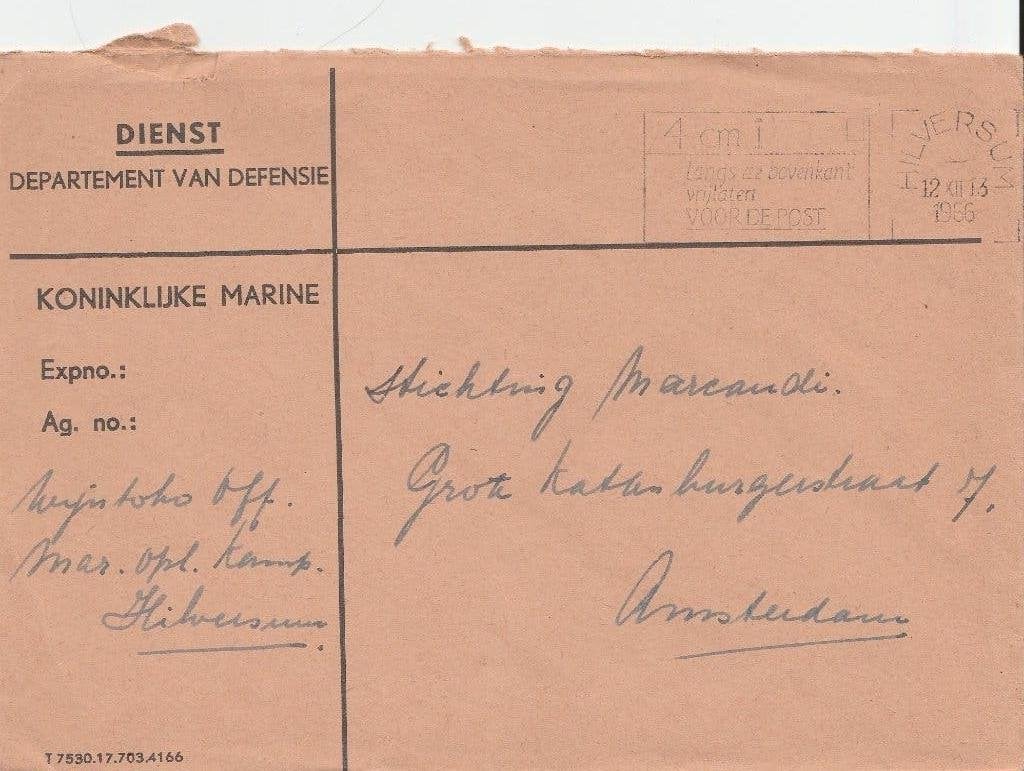 DIENST
DEPARTEMENT VAN DEFENSIE
4 cm
langs de bovenkant
vrijlaten
VOOR DE POST
HILVERSUM
12 XII 13
1966
KONINKLIJKE MARINE
Expno.:
Ag. no.:
Stichting Marcandi.
Grote Kattenburgerstraat 7.
Amsterdam
Off.
Mar. Opl. Kamp.
Hilversum.
T 7530.17.703.4166